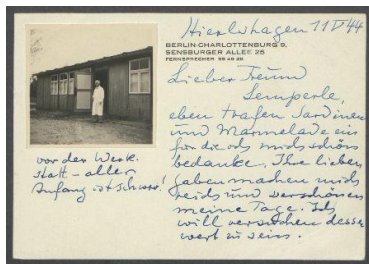 Hierlshagen 11 V 44
BERLIN-CHARLOTTENBURG 9,
SENSBURGER ALLEE 25
FERNSPRECHER 99 40 28
Lieber Freund
Semperle,
eben trafen Sardinen
und Marmelade ein
für die ich mich schön
bedanke. Ihre lieben
Gaben machen mich
reich und verschönen
meine Tage. Ich
will versuchen dessen
wert zu sein.
vor der Werk-
statt – aller
Anfang ist schwer!